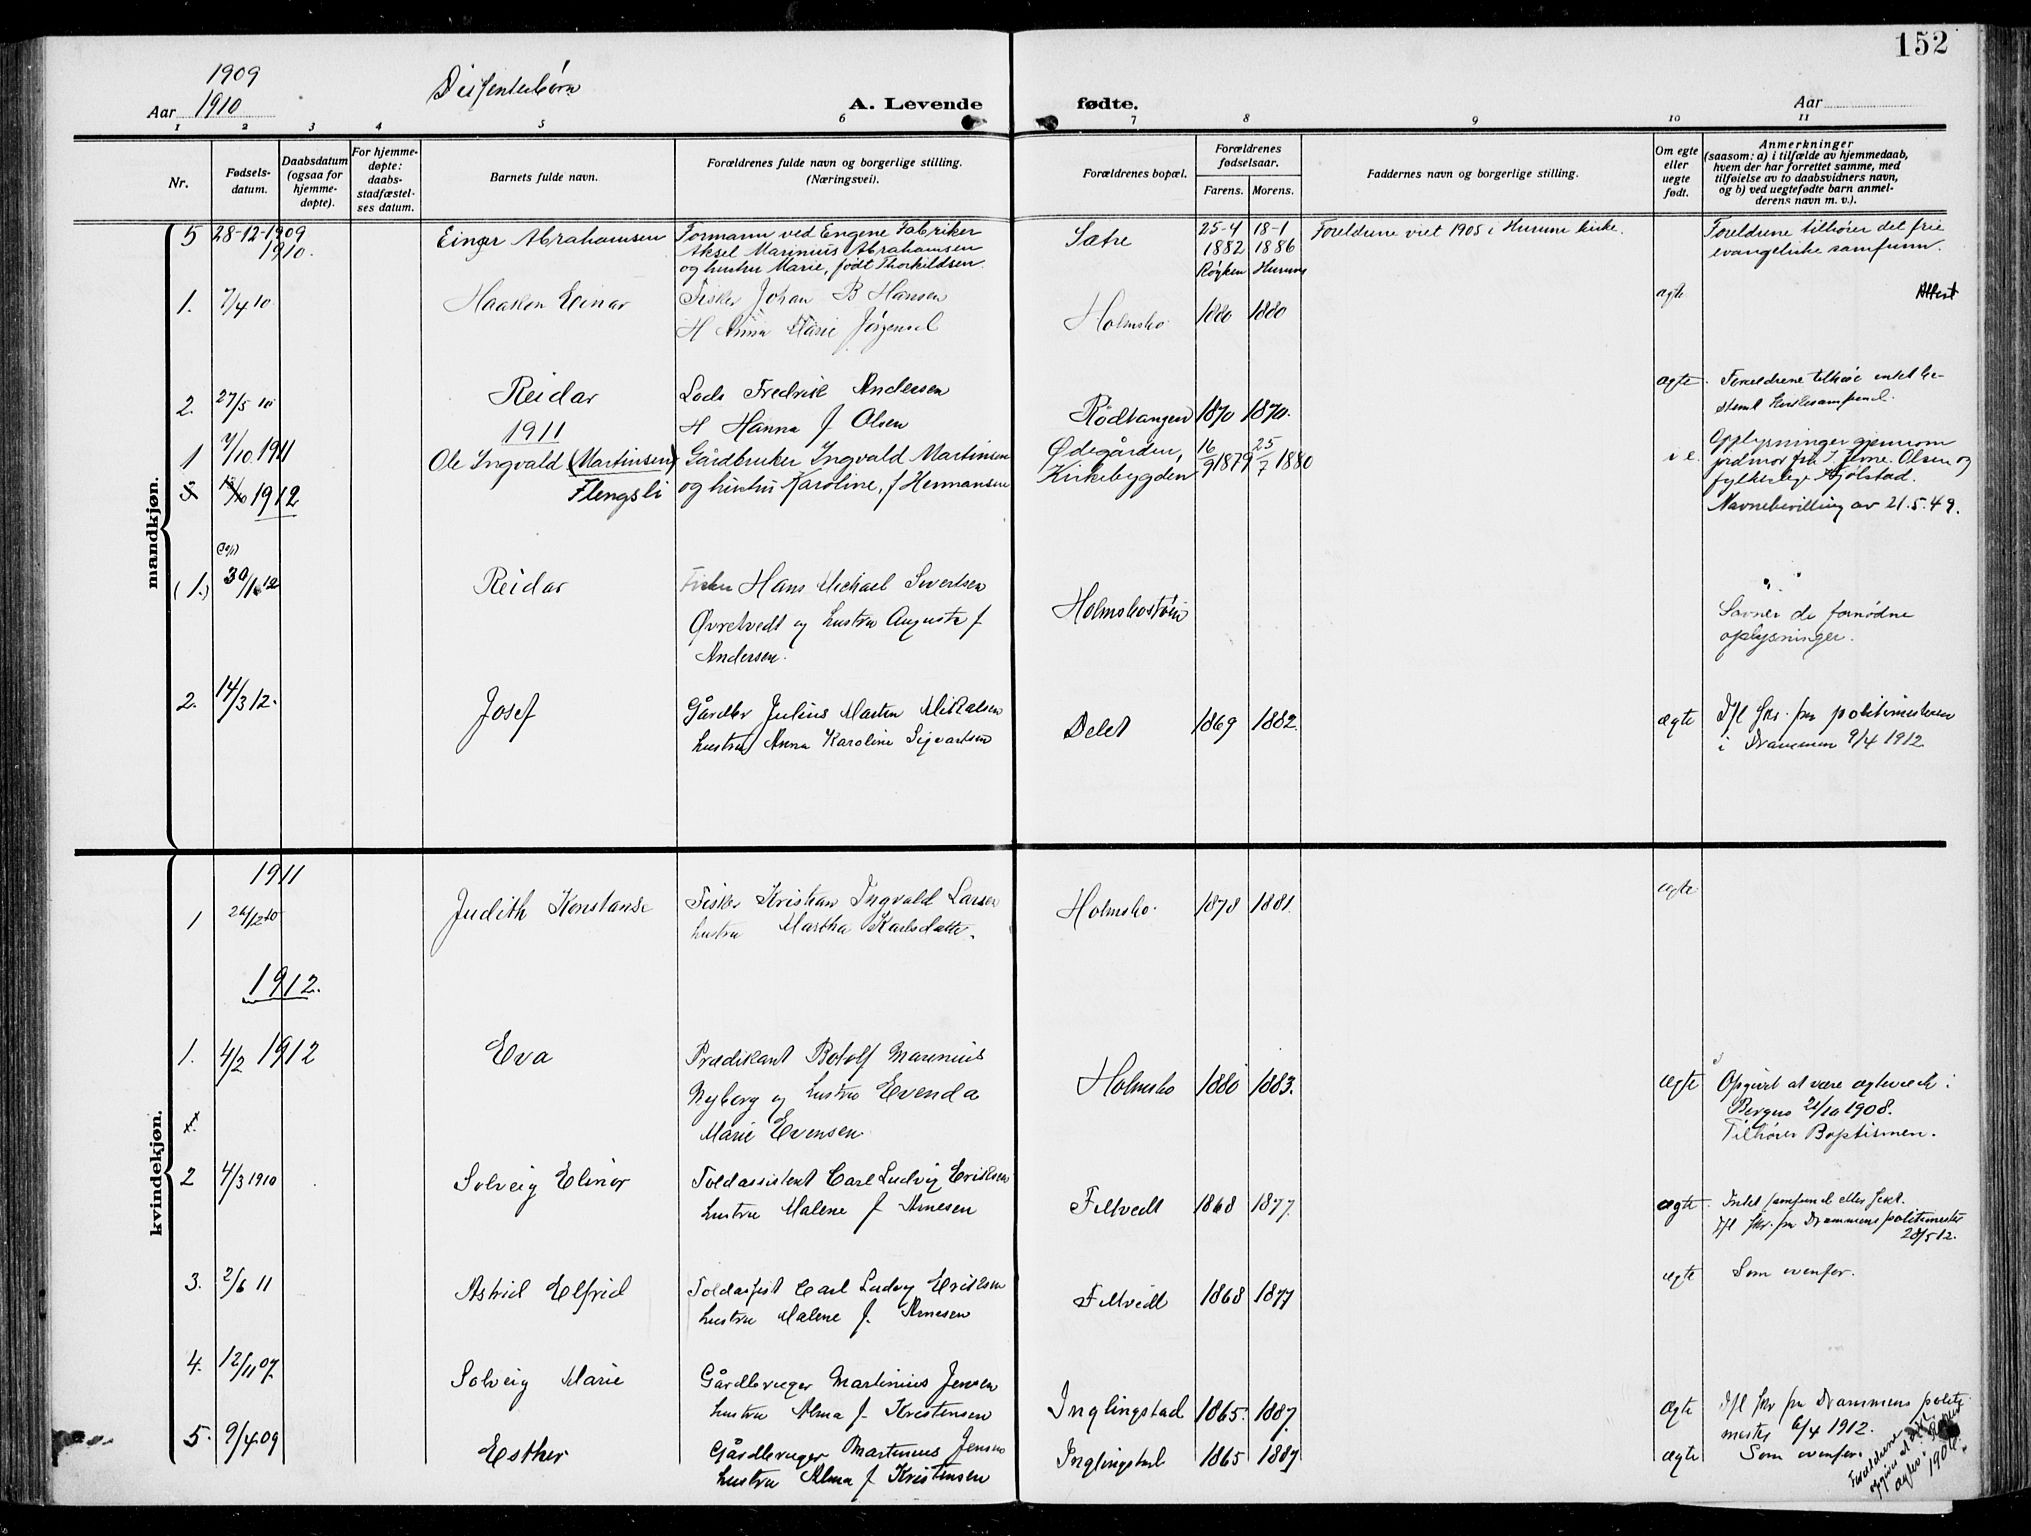 152
1909
Aar 1910
Dissenterbørn
A. Levende
fødte.
Aar
1 2 3 4 5 6 7 8 9 10 11
Nr.
Fødsels-
datum.
Daabsdatum
(ogsaa for
hjemme-
døpte).
For hjemme-
døpte:
daabs-
stadfæstel-
ses datum.
Barnets fulde navn.
Forældrenes fulde navn og borgerlige stilling.
(Næringsvei).
Forældrenes bopæl.
Forældrenes
fødselsaar.
Farens. Morens.
Faddernes navn og borgerlige stilling.
Om egte
eller
uegte
født.
Anmerkninger
(saasom: a) i tilfælde av hjemmedaab,
hvem der har forrettet samme, med
tilføielse av to daabsvidners navn,
og b) ved uegtefødte barn anmel-
derens navn m. v.).
mandkjøn.
5 28-12-1909 Einar Abrahamsen Formann ved Engene Fabriker Sætre 25-4 18-1 Foreldrene viet 1905 i Hurum kirke. Foreldrene tilhører det frie
1910. Aksel Marinius Abrahamsen 1882 1886 evangeliske samfunn.
og hustru Marie, født Thorkildsen. Røyken Hurum
1. 7/4 10 Haakon Einar Fisker Johan B Hansen Holmsbo 1880 1880 ægte Attest
H Anna Marie Jørgensd
2. 27/5 10 Reidar Lods Fredrik Andersen Rødtangen 1870 1870. ægte. Forældrene tilhør intet be-
H Hanna f Olsen stemt kirkesamfund.
1911
1 7/10 1911 Ole Ingvald (Martinsen) Gårdbruker Ingvald Martinsen Ødegården, 16/9 1879 25/7 1880 i e. Opplysninger gjennom
Flengsli og hustru Karoline, f Hermansen Kirkebygden jordmor fru J. Jerne. Olsen og
1912 fylkeslege Kjølstad.
Navnebevilling av 21.5.49.
(1.) 30/1 12 Reidar Fisker Hans Michael Sivertsen Holmsbostøin
Øvretvedt og hustru Augusta f Savner de fornødne
Andersen. oplysninger.
2. 14/3 12. Josef Gårdbr Julius Martin Mikalsen Delet 1869 1882. ægte Ifl skr. fra politimesteren
hustru Anna Karoline Sigvartsen i Drammen 9/4 1912
kvindekjøn.
1911
1 26/12 10 Judith Konstanse Fisker Kristian Ingvald Larsen Holmsbo. 1878 1881. ægte
hustru Martha Karlsdatter.
1912.
1. 4/2 1912 Eva Prædikant Botolf Marenius Holmsbo 1880 1883. ægte Opgivet at være ægteviede i
Nyborg og hustru Evenda Bergen 21/10 1908.
Marie Evensen. Tilhører Baptismen.
2 4/3 1910 Solveig Elinor Toldassistent Carl Ludvig Eriksen Filtvedt 1868 1877. ægte Intet samfund eller sekt.
hustru Malene f Arnesen Ifl skr. fra Drammens politimester
28/5 12.
3. 2/6 11 Astrid Elfrid Toldassist Carl Ludvig Eriksen Filtvedt 1868 1877 ægte Som ovenfor.
hustru Malene f. Arnesen
4. 12/11 07 Solveig Marie Gårdbruger Martinius Jensen Inglingstad 1865. 1887. ægte Ifl skr fra Drammens politi
hustru Alma f. Kristensen mester 6/4 1912.
5. 9/4 09 Esther Gårdbruger Martinius Jensen Inglingstad 1865 1887 ægte Som ovenfor.
hustru Alma f Kristensen
Forældrene
1906.